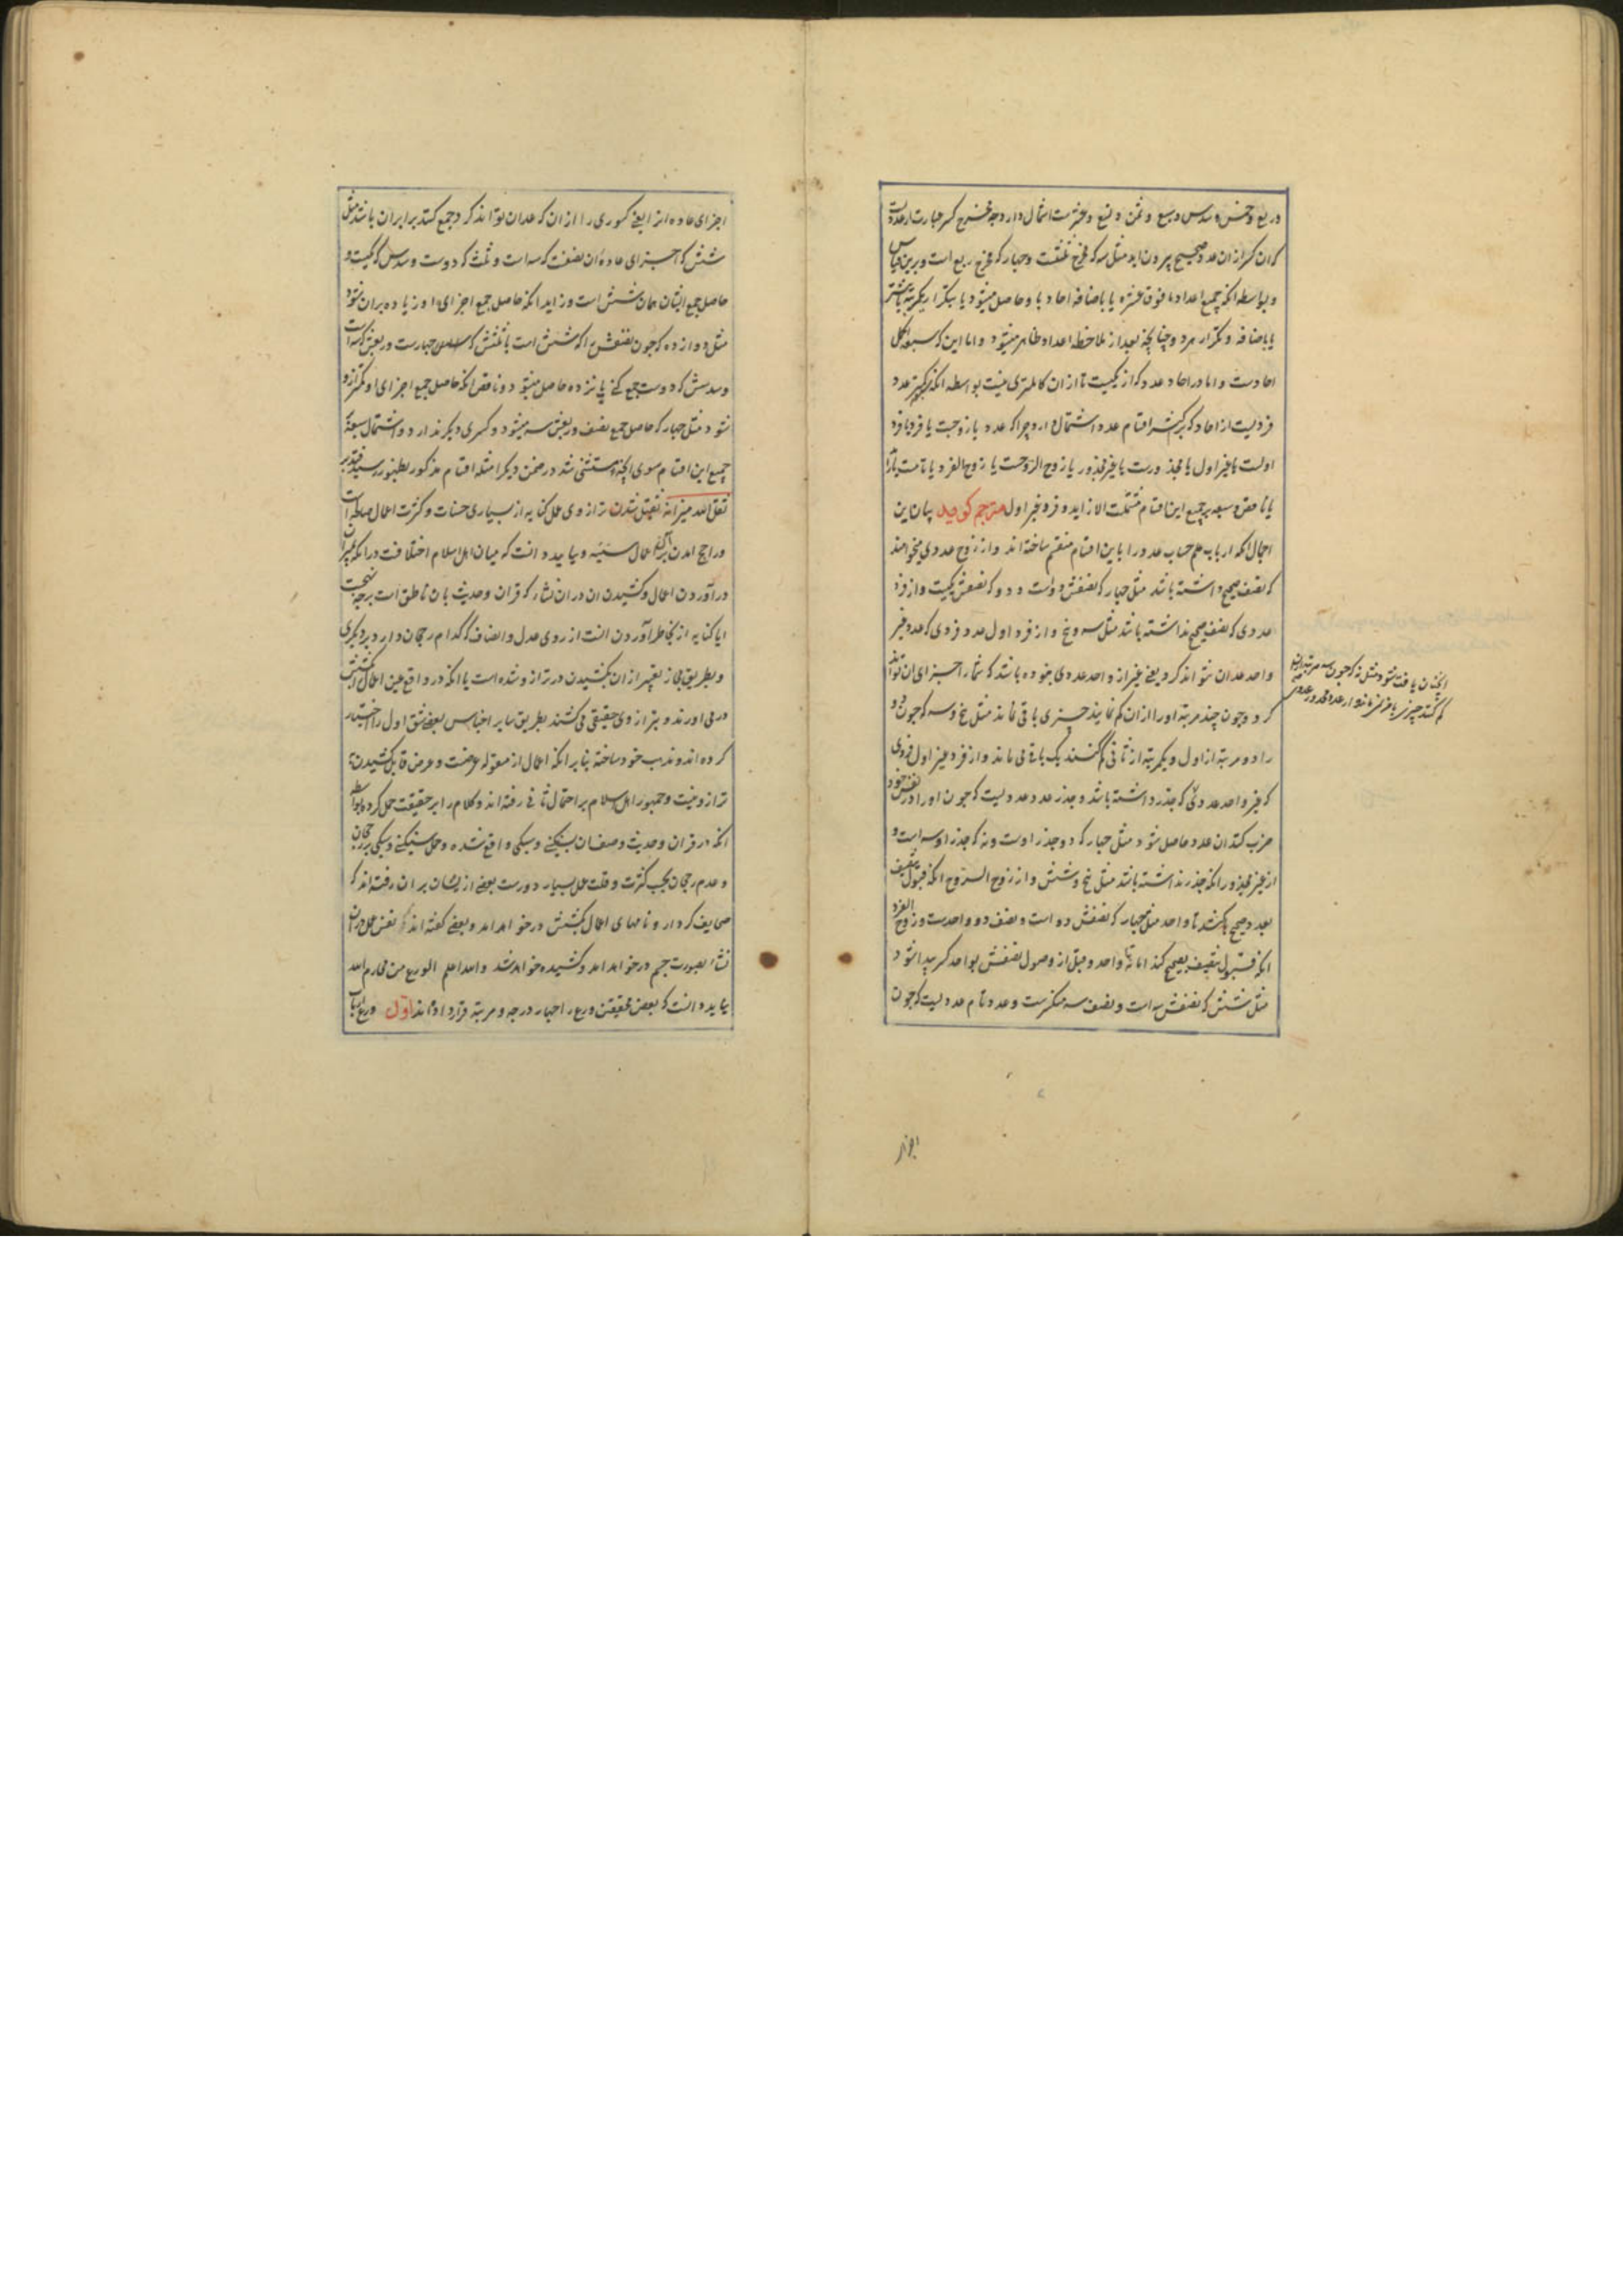 و ربع و خمس و سدس و سبع و ثمن و تسع و عشرست اشتمال دارد چه مخرج کسر عبارت از عددیست
که ان کسر ازان عدد صحیح بیرون اید مثل سه که مخرج ثلثست و چهار که مخرج ربع است و برین قیاس
و بواسطه انکه جمیع اعداد ما فوق عشره یا باضافه احاد با و حاصل میشود یا بتکرار یکمرتبه یا بیشتر
یا باضافه و تکرار هر دو چنانچه بعد از ملاحظه اعداد ظاهر میشود و اما این که سبعه اکمل
احادست و اما در احاد عدد که از یکیست تا ازان کاملتری نیست بواسطه انکه عدد
فردیست از احاد که بر اکثر اقسام عدد اشتمال دارد چرا که عدد یا زوجست یا فرد یا فرد
اولست یا غیر اول یا مجذورست یا غیر مجذور یا زوج الزوجست یا زوج الفرد یا تامست یا زاید
یا ناقص و سبعه بر جمیع این اقسام مشتملست الا زاید و فرد غیر اول مترجم کوید بیان این
اجمال انکه ارباب علم حساب عدد را باین اقسام منقسم ساخته اند و از زوج عددی میخواهند
که نصف صحیح داشته باشد مثل چهار که نصفش دوست و دو که نصفش یکیست و از فرد
عددی که نصف صحیح نداشته باشد مثل سه و پنج و از فرد اول عدد فردی که عدد غیر
واحد عد ان نتواند کرد یعنی غیر از واحد عددی نبوده باشد که شمار اجزای ان تواند
کرد و چون چند مرتبه او را ازان کم نمایند چیزی باقی نماند مثل پنج و سه که چون دو
را دو مرتبه از اول و یکمرتبه از ثانی کم کنند یک باقی می ماند و از فرد غیر اول فردی
که غیر واحد عد وی کند
انچنان یافت شود مثل نه که چون سه مرتبه از ان
کم کنند چیزی باقی نماند و از عدد مجذور عددی
که جذر داشته باشد و جذر عدد عددیست که چون او را در نفس خود
ضرب کنند ان عدد حاصل شود مثل چهار که دو جذر اوست و نه که جذر او سه است و
از غیر مجذور انکه جذر نداشته باشد مثل پنج و شش و از زوج الزوج انکه قبول تنصیف
بعدد صحیح بکند تا واحد مثل چهار که نصفش دو است و نصف دو واحدست و زوج الفرد
انکه قبول تنصیف بصحیح کند اما نه تا واحد و قبل از وصول نصفش بواحد کسر پیدا شود
مثل شش که نصفش سه است و نصف سه منکسرست و عدد تام عددیست که چون
اجزای
اجزای عاده او را یعنی کسوری را از ان که عد ان تواند کرد جمع کنند برابر ان باشد مثل
شش که اجزای عاده ان نصفست که سه است و ثلث که دوست و سدس که یکیست و
حاصل جمع ایشان همان شش است و زاید انکه حاصل جمع اجزای او زیاده بران شود
مثل دوازده که چون نصفش را که شش است با ثلثش که چهارست و ربعش که سه است
و سدسش که دوست جمع کنی پانزده حاصل میشود و ناقص انکه حاصل جمع اجزای او کمتر ازو
شود مثل چهار که حاصل جمع نصف و ربعش سه میشود و کسری دیگر ندارد و اشتمال سبعه بر
جمیع این اقسام سوی انچه مستثنی شد در ضمن دیگر امثله اقسام مذکور بظهور رسید فتدبر
ثقل الله میزانه ثقیل شدن ترازوی عمل کنایه از بسیاری حسنات و کثرت اعمال صالحه است
و راجح امدن بر اعمال سیئه و بباید دانست که میان اهل اسلام اختلافست در انکه میزان
در آوردن اعمال و کشیدن ان در ان نشأه که قران و حدیث بان ناطق است بر چه نهجست
ایا کنایه از بخاطر آوردن انست از روی عدل و انصاف که کدام رجحان دارد بر دیگری
و بطریق مجاز تعبیر ازان بکشیدن در ترازو شده است یا انکه در واقع عین اعمال را بکشش
در می اورند و بترازوی حقیقی می کشند بطریق سایر اجناس بعضی شق اول را اختیار
کرده اند و مذهب خود ساخته بنا بر انکه اعمال از مقوله عرضست و عرض قابل کشیدن
ترازو نیست و جمهور اهل اسلام بر احتمال ثانی رفته اند و کلام را بر حقیقت حمل کرده بواسطه
انکه در قران و حدیث وصف ان بسنگینی و سبکی واقع شده و حمل سنگینی و سبکی بر رجحان
و عدم رجحان بحسب کثرت و قلت عمل بسیار دورست بعضی از ایشان بر ان رفته اند که
صحایف کردار و نامهای اعمال بکشش در خواهد امد و بعضی گفته اند که نفس عمل در ان
نشأه بصورت جسم در خواهد امد و کشیده خواهد شد و الله اعلم الورع من محارم الله
بباید دانست که بعضی محققین ورع را چهار درجه و مرتبه قرار داده اند اول ورع